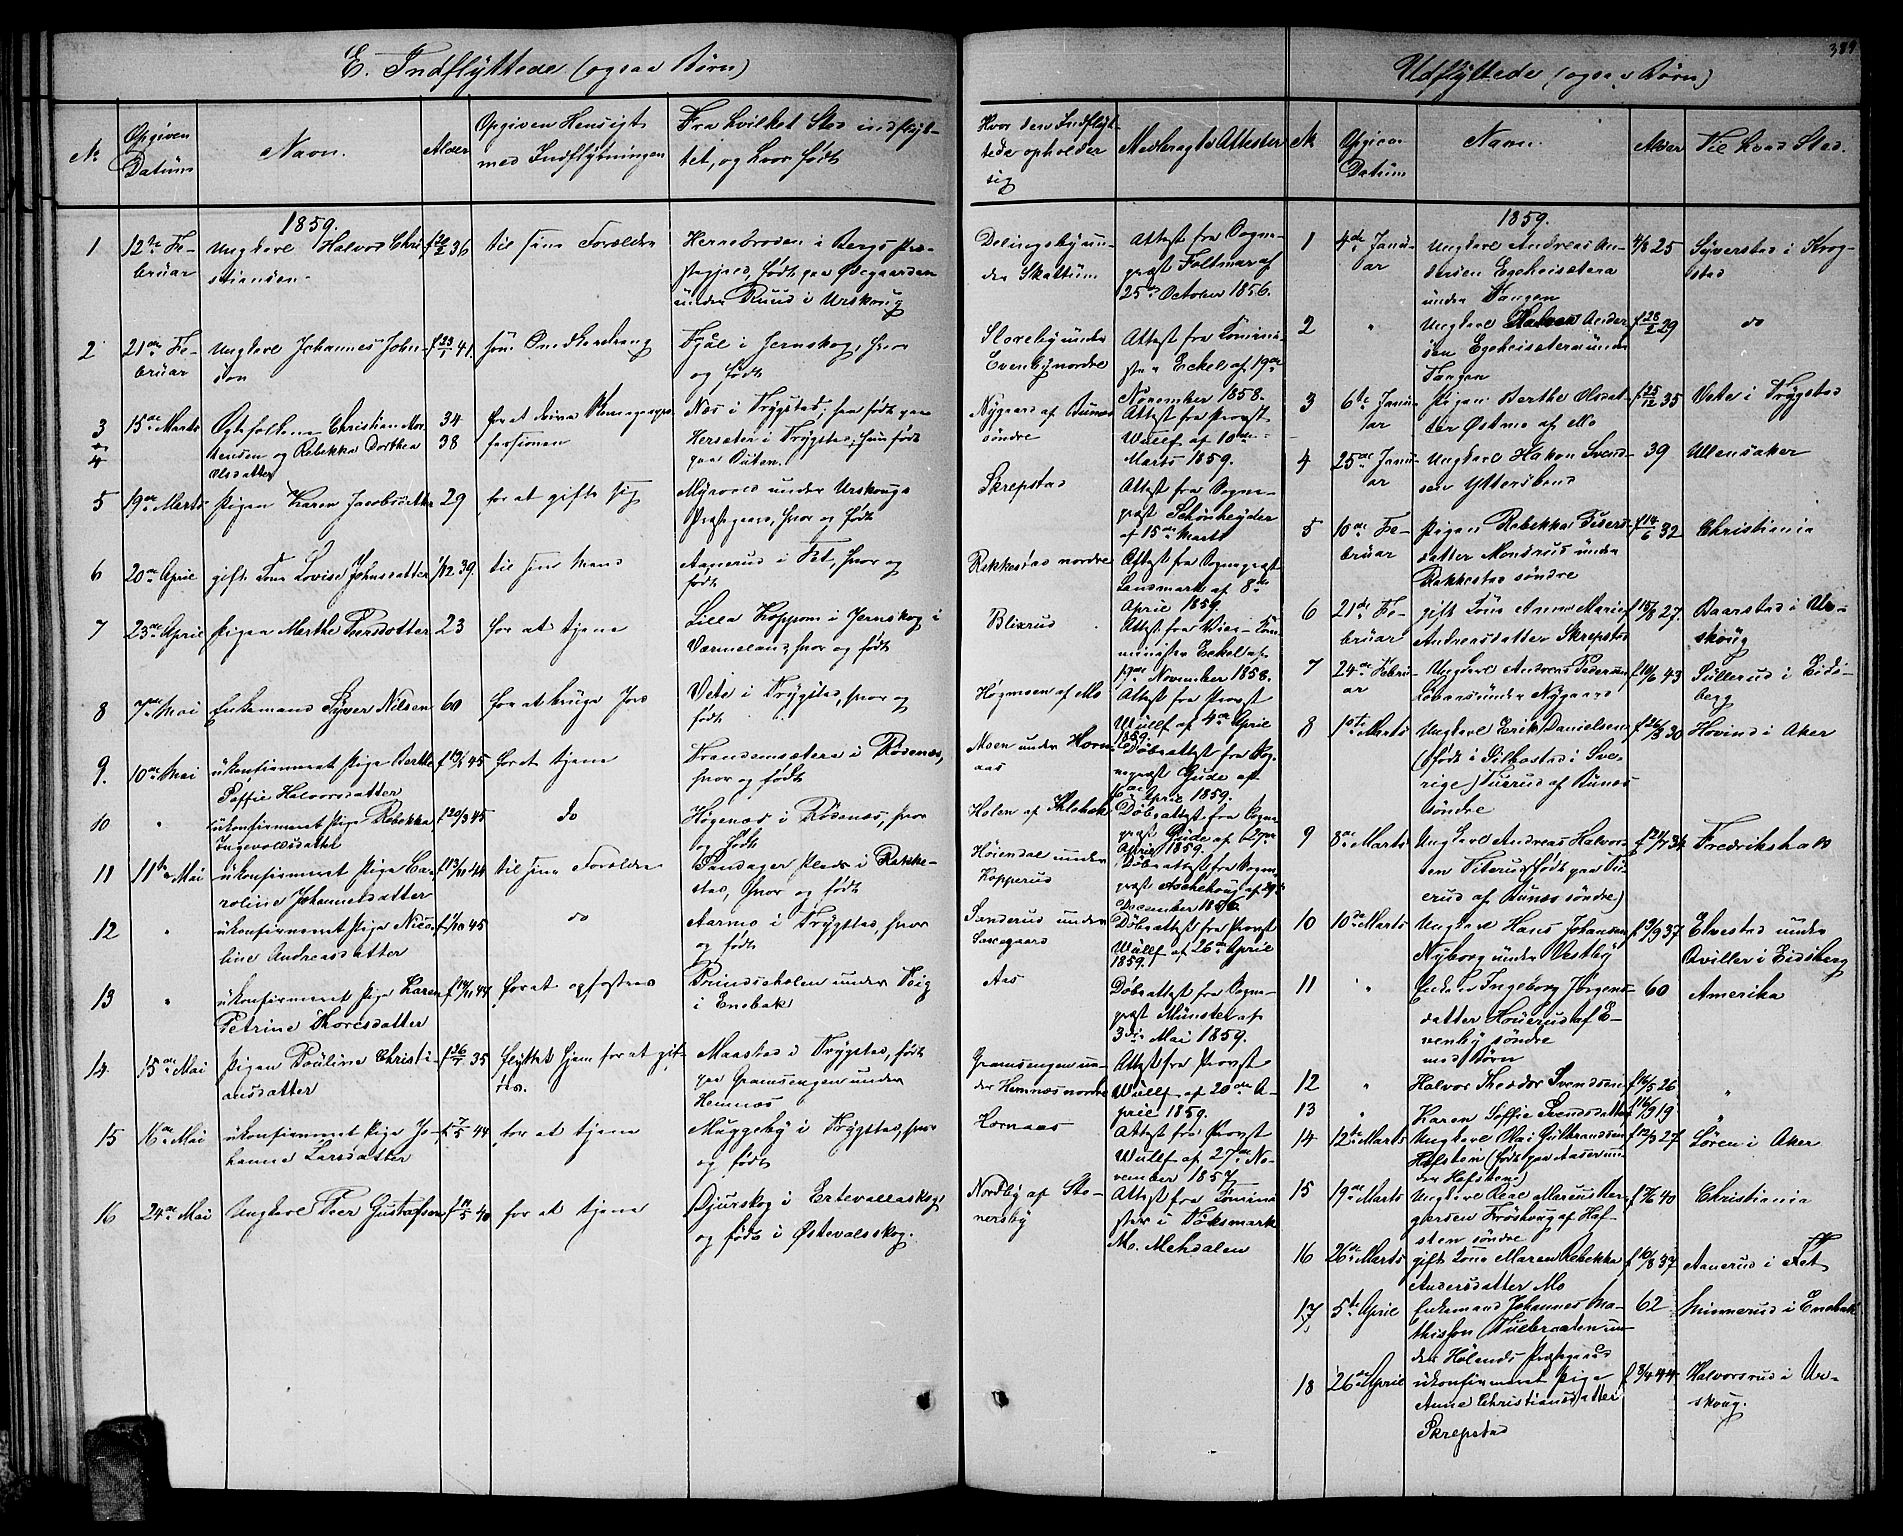 389
E. Indflyttede (ogsaa Børn)
Udflyttede (ogsaa Børn)
No
Opgiven
Datum
Navn.
Alder
Opgiven Hensigt
med Indflytningen
Fra hvilket Sted indflyt-
tet, og hvor født
Hvor den Indflyt-
tede opholder
sig
Medbragte Attester
No
Opgiven
Datum
Navn.
Alder
Til hvad Sted.
1859.
1 12te Fe-
bruar
Ungkarl Halvor Chri-
stiansen.
36
til sine Forældre
Herrebrøden i Bergs Præ-
stegjeld, født paa Ødegaarden
under Ruud i Urskoug
Delingsby un-
der Skattum
Attest fra Sogne-
præst Foltmar af
25de October 1856.
2 21de Fe-
bruar
Ungkarl Johannes John-
sen
f 23/1 41
som Smedkerdreng
i Jernskog, hvor
og født
Sloreby under
Evenby nordre
Attest fra Komini-
ster Eckel af 19de
November 1858.
3
4
15de Marts
Ægtefolkene Christian Mor-
tensen og Rebekka Dorthea
Olsdatter
34
38
for at drive
fessionen
Næs i Trygstad; han født paa
Hersæter i Trygstad, hun født
paa
Nygaard af Bunæs
søndre
Attest fra Provst
Wulff af 10de
Marts 1859.
5 19de Marts
Pigen Karen Jacobsdatter
29
for at gifte sig
Myrvold under Urskougs
Præstegaard, hvor og født
Skrepstad
Attest fra Sogne-
præst Schönheyder
af 15de Marts
6 20de April
gift Kone Lovise Johnsdatter
1/12 39.
til sin Mand
Aanerud i Fet, hvor og
født
Rakkestad nordre
Attest fra Sognepræst
Landmark af 8de
April 1859.
7 23de April
Pigen Marthe Persdatter
23
for at tjene
Lilla Koppom i Jernskog i
Værmeland, hvor og født
Blixrud
Attest fra Vice-Kom-
minister Eckel af
19de November 1858.
8 7de Mai
Enkemand Syver Nilsen
60
for at bruge Jord
Vete i Trygstad, hvor og
født
Høgmoen af Mo
Attest fra Provst
Wulff af 4de April
1859.
9. 10de Mai
ukonfirmeret Pige Berthe
Soffie Halvorsdatter
45
for at tjene
Brændemsætern i Rødenæs,
hvor og født
Moen under Horn-
aas
Døbeattest fra Sog-
nepræst Gude af
6de April 1859.
10 "
ukonfirmeret Pige Rebekka
Ingevoldsdatter
f 20/3 45
do
Høgenæs i Rødenæs, hvor
og født
Holen af
Døbeattest fra Sogne-
præst Gude af 27de
April 1859.
11 11te Mai
ukonfirmeret Pige Ca-
roline Johannesdatter
f 13/11 44
til sine Forældre
Sandager Plads i Rakke-
stad, hvor og født
Høiendal under
Kopperud
Døbeattest fra Sogne-
præst Aschehoug af 29de
December 1856.
12 "
ukonfirmeret Pige Nico-
line Andreasdatter
f 1/10 45
do
Aarnes i Trygstad, hvor
og født
Sanderud under
Døbeattest fra Provst
Wulff af 26de April
1859.
13 "
ukonfirmeret Pige Karen
Petrine Thoresdatter
f 14/11 44
for at opfostres
Prindseholen under Veig
i Enebak
Aas
Døbeattest fra Sogne-
præst Münster af
3die Mai 1859.
14 15de Mai
Pigen Pauline Christi-
ansdatter
f 26/1 35
flyttet hjem for at gif-
tes.
Maastad i Trygstad, født
paa Gramsengen under
Hemnæs
Gramsengen un-
der Hemnæs nordre
Attest fra Provst
Wulff af 20de A-
pril 1859.
15 16de Mai
ukonfirmeret Pige Jo-
hanne Larsdatter
f 7/5 44
for at tjene
Muggeby i Trygstad, hvor
og født
Hornaas
Attest fra Provst
Wulff af 27de No-
vember 1857.
16 24de Mai
Ungkarl Peer Gustafsen
40
for at tjene
Djurskog i Ertevallaskog
og født i Østevalsskog.
Nordby af Sto-
nersby
Attest fra Komini-
ster i Töksmark
M. Mehdalen
1859.
1 4de Janu-
ar
Ungkarl Andreas An-
dersen Egeheisætern
under Tangen
4/8 25
Syverstad i Krog-
stad
2 "
Ungkarl Ander-
sen Egeheisætern under
Tangen
29
do
3 6te Janu-
ar
Pigen Berthe Olsdat-
ter Østmo af Mo
f 25/12 35
Vete i Trygstad
4 25de Janu-
ar
Ungkarl Hakon Svend-
sen Yttersbøud
39
Ullensaker
5 10de Fe-
bruar
Pigen Rebekka
datter Monsrud under
Rakkestad søndre
f 14/6 32
Christiania
6 21de Fe-
bruar
gift Kone Anne Marie
Andreasdatter Skrepstad
f 15/8 27.
Baarstad i Ur-
skoug
7 24de Febru-
ar
Ungkarl Andreas Pedersen
under Nygaard
43
Sullerud i Eids-
berg
8 1ste Marts
Ungkarl Erik Danielsen
(født i Silbostad i Sve-
rige) Tuerud af Bunæs
søndre
30
Hovind i Aker
9 8de Marts
Ungkarl Andreas Halvor-
sen Viterud (født paa
af Bunæs søndre)
34
Fredrikshald
10 10de Marts
Ungkarl Hans Johansen
Nyborg under Vestby
f 3/9 37
Elvestad under
i Eidsberg
11 "
Enken Ingeborg Jørgens-
datter Houerud af E-
venby søndre
med Børn
60
Amerika
12 "
Halvor Theodor Svendsen
26
"
13 "
Karen Soffie Svendsdatter
f 16/9 19
"
14 12te Marts
Ungkarl Olai Gulbrandsen
Hafsten (født paa Aaserud un-
der Hafsten)
f 12/3 27
Løren i Aker
15 19de Marts
Ungkarl Axel Marcus Ber-
gersen Frøshoug af Haf-
sten søndre
40
Christiania
16 26de Marts
gift Kone Maren Rebekka
Andersdatter Mo
f 10/8 37
Aanerud i Fet
17 5te April
Enkemand Johannes Ma-
thison Tulbraaten un-
der Hølands Præstegaard
62
Minnerud i Enebak
18 26de April
ukonfirmeret Pige
Anne Christiansdatter
Skrepstad
f 3/4 44
Halvorsrud i Ur-
skoug.